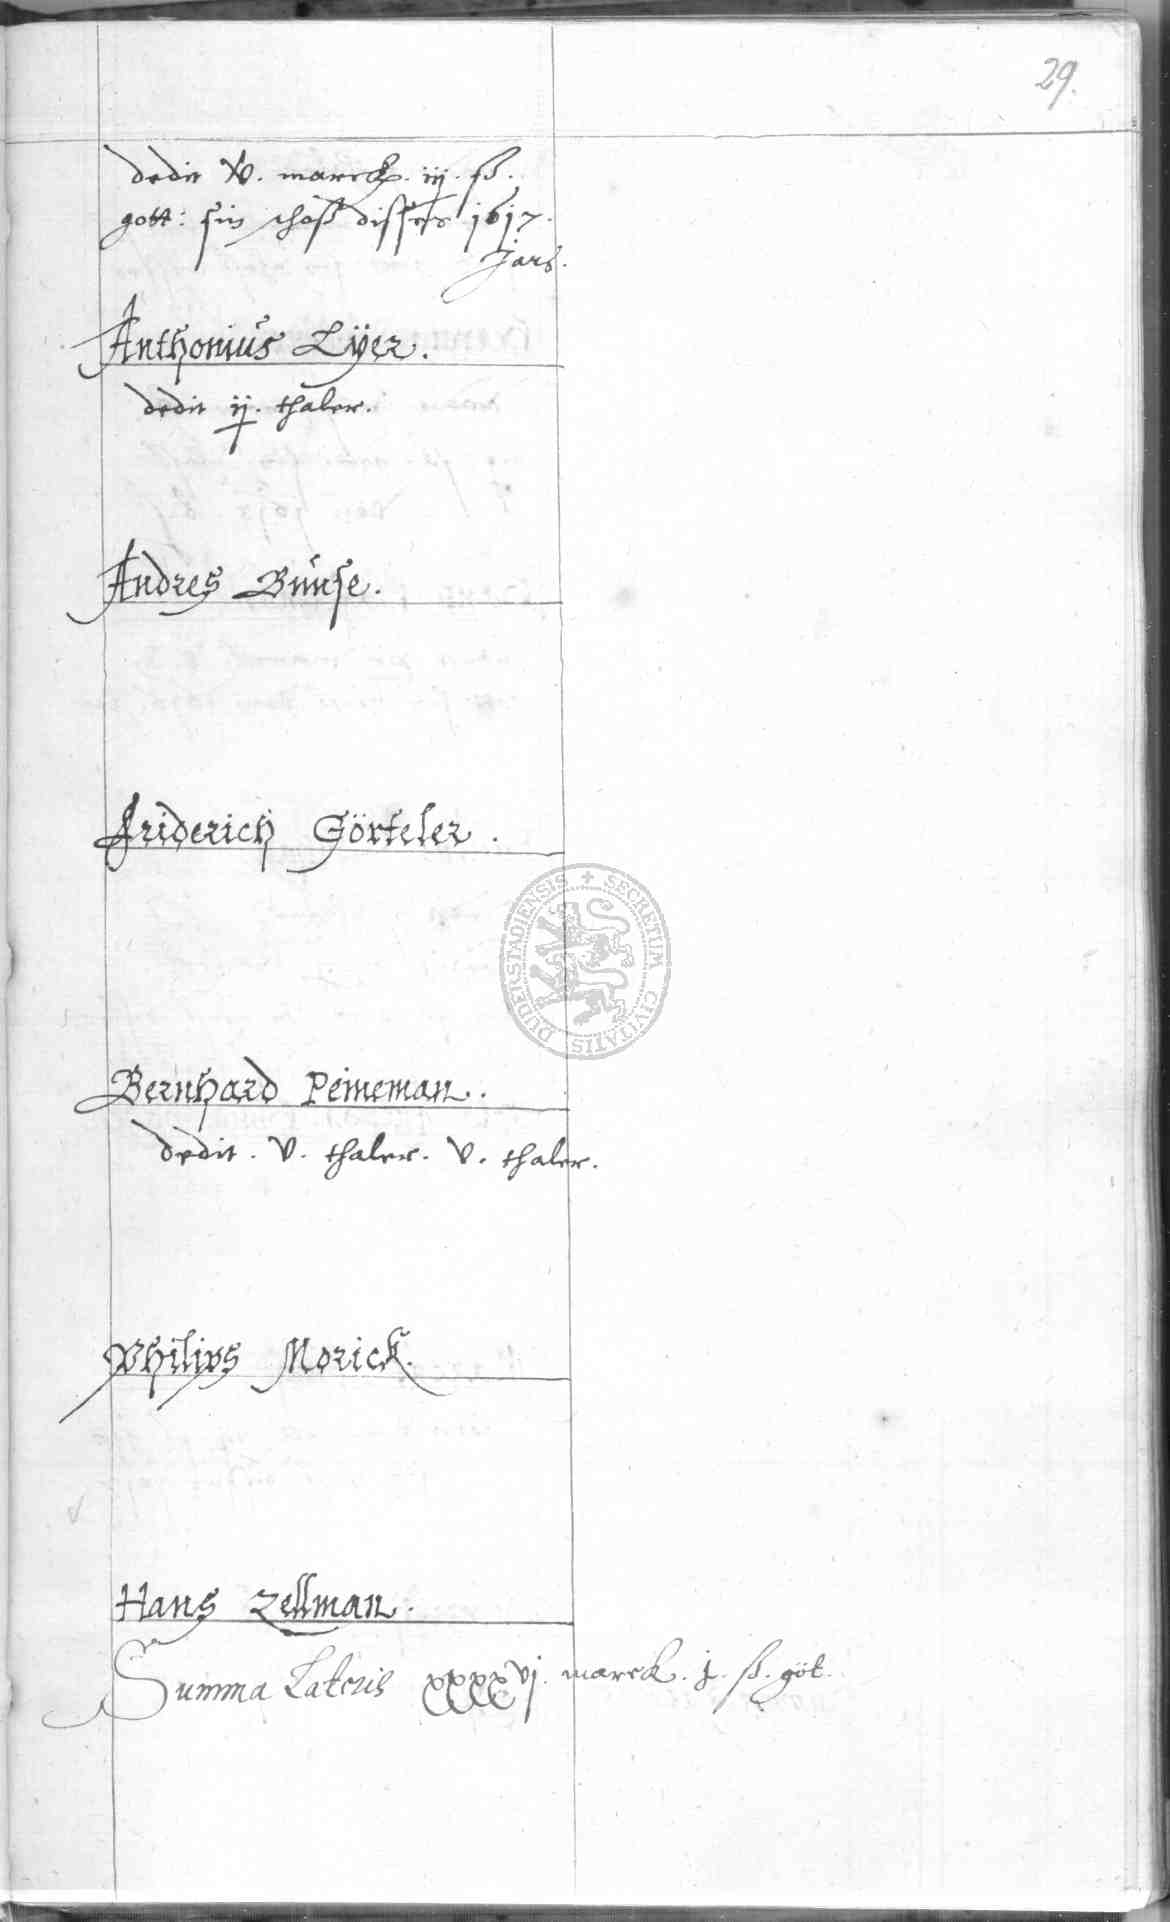 29.
dedit v. marck. iij. ß.
gott: sin schoß disses 1617.
Jars.
Anthonius Lÿer.
dedit ij. thaler.
Andres Bunse.
Friderich Görteler.
DUDERSTADIENSIS + SECRETUM CIVITATIS
Bernhard Peineman.
dedit. v. thaler. v. thaler.
Philips Morick.
Hans Zellman.
Summa Lateris xxxxvj. marck. j. ß. göt.